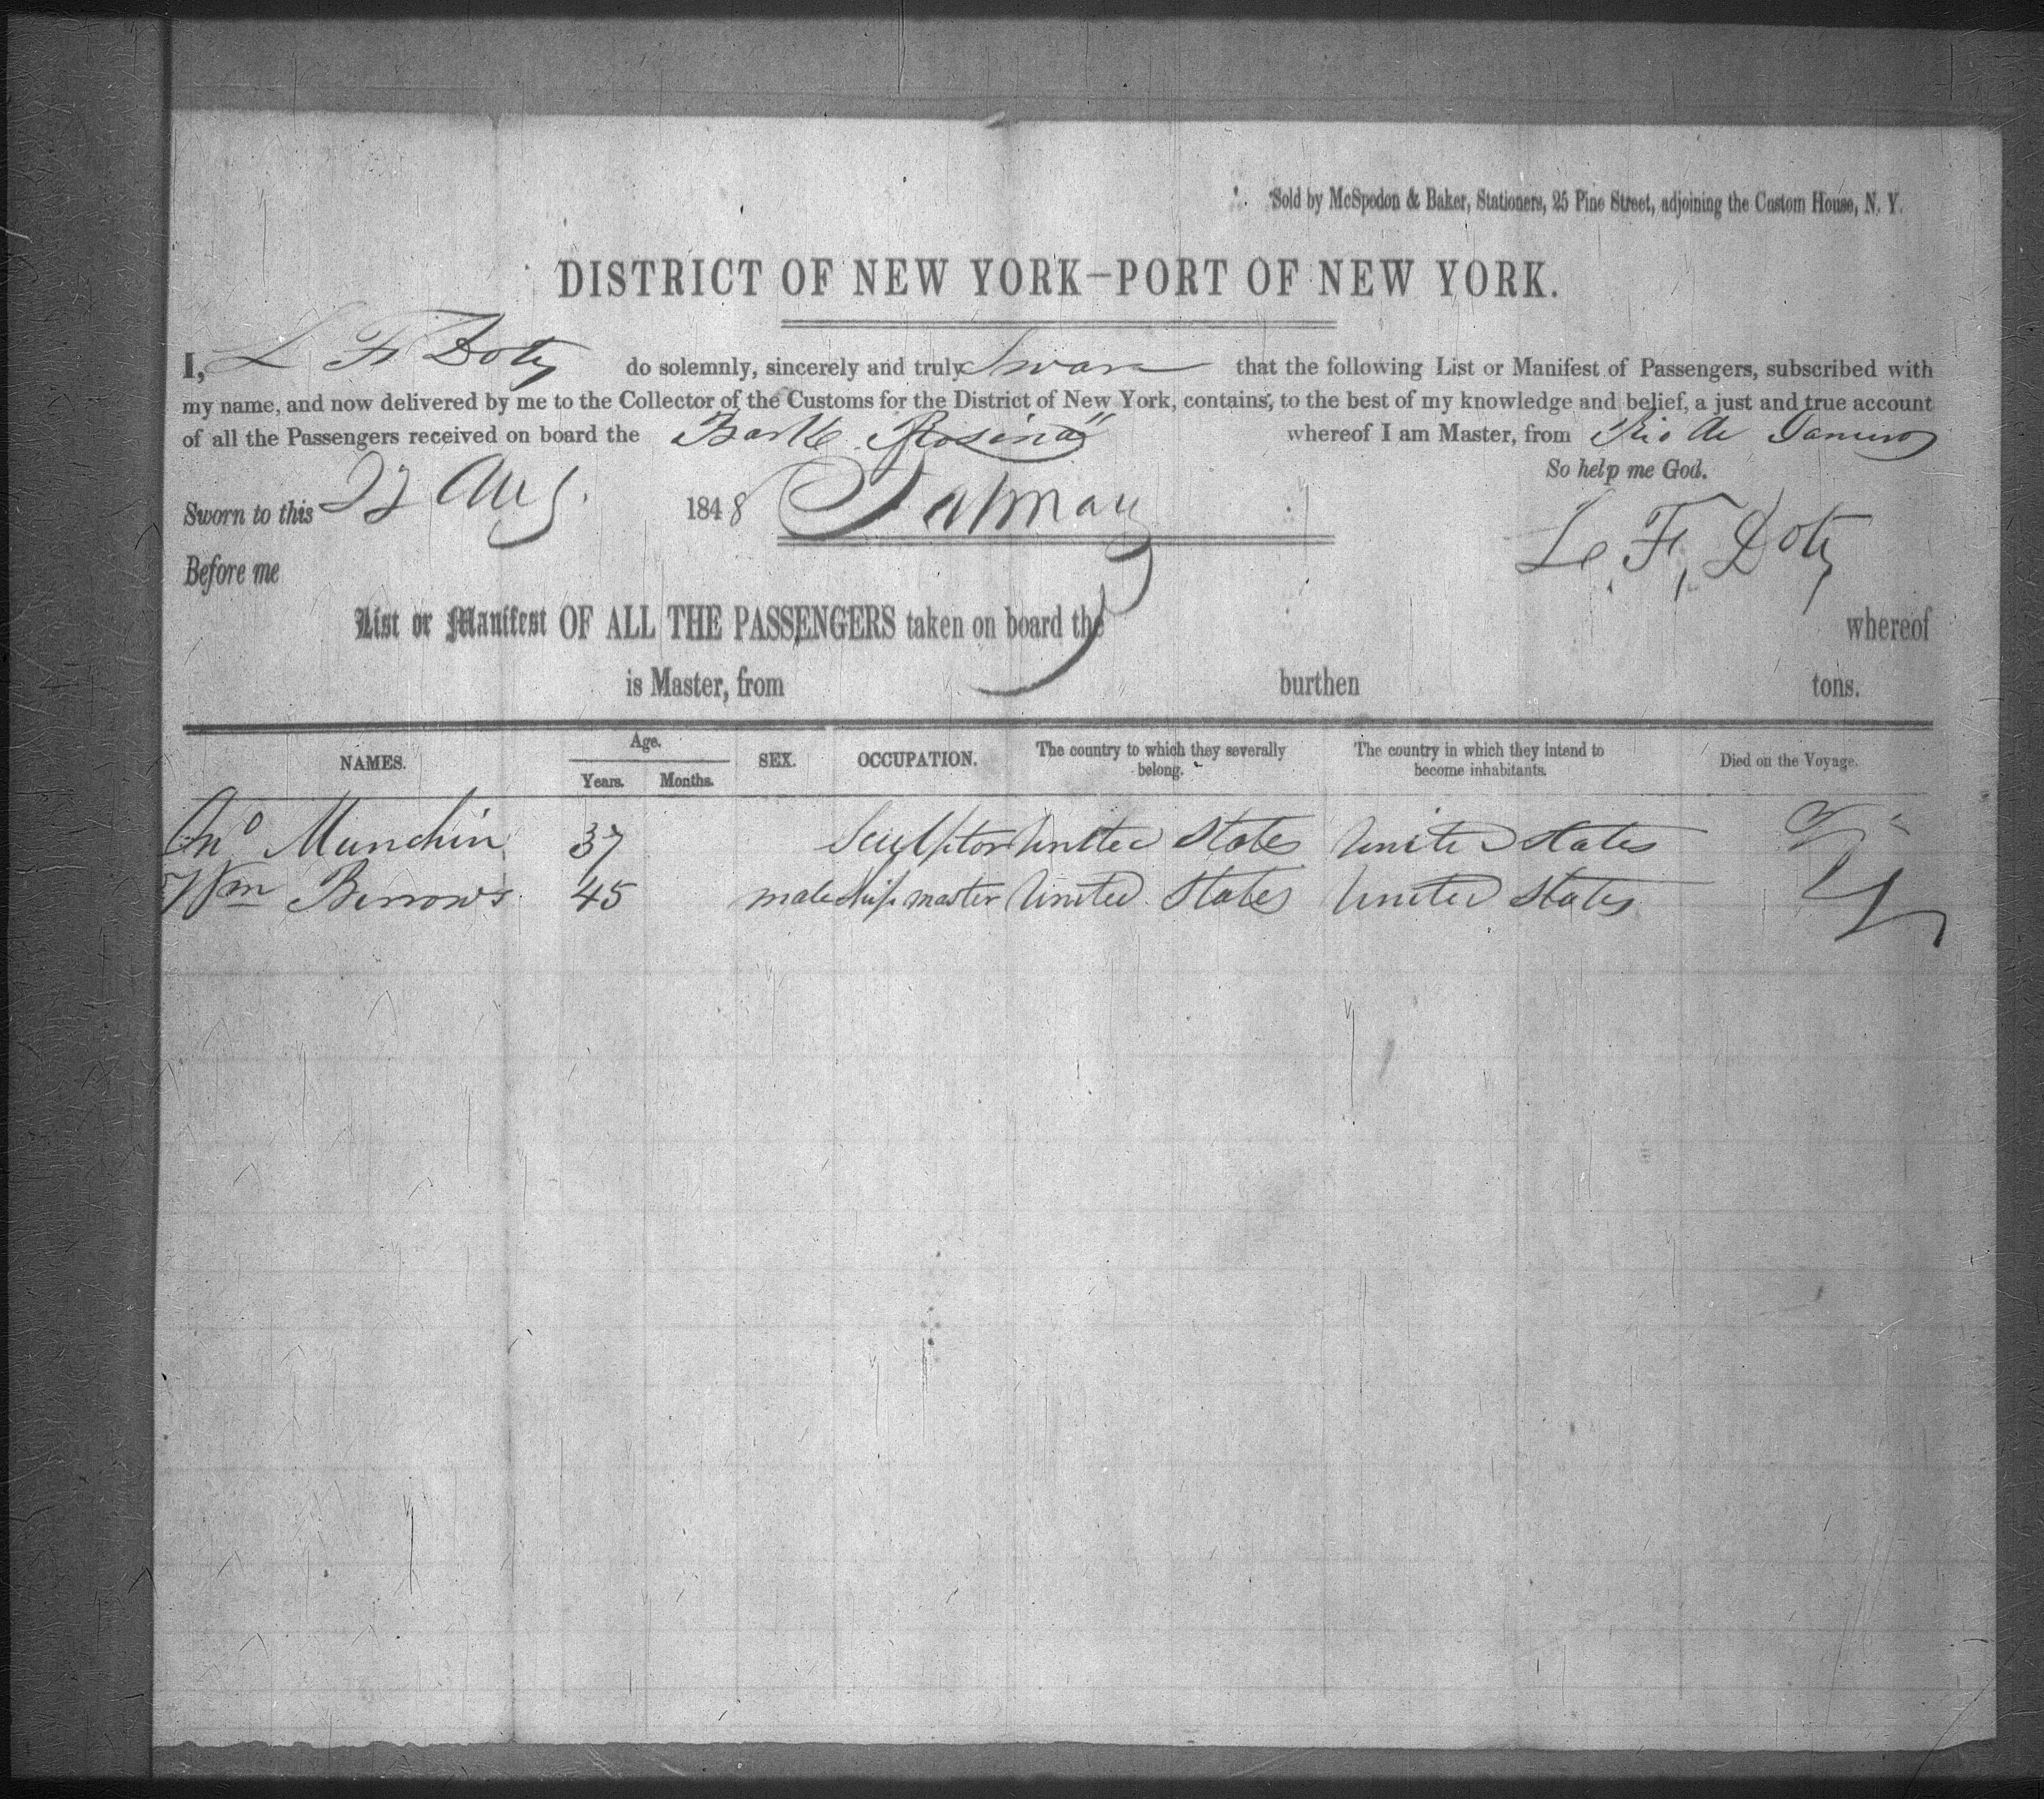 Sold by McSpedon & Baker, Stationers, 25 Pine Street, adjoining the Custom House, N. Y.
DISTRICT OF NEW YORK—PORT OF NEW YORK.
I, L F Doty do solemnly, sincerely and truly Swear that the following List or Manifest of Passengers, subscribed with
my name, and now delivered by me to the Collector of the Customs for the District of New York, contains, to the best of my knowledge and belief, a just and true account
of all the Passengers received on board the Bark "Rosina" whereof I am Master, from Rio de Janeiro
So help me God.
Sworn to this Aug. 1848
L. F. Doty
Before me
List or Manifest OF ALL THE PASSENGERS taken on board the whereof
is Master, from burthen tons.
NAMES. Age. Years. Months. SEX. OCCUPATION. The country to which they severally belong. The country in which they intend to become inhabitants. Died on the Voyage.
Munchin 37 Sculptor United States United States
Wm Burrows 45 male ship master United States United States